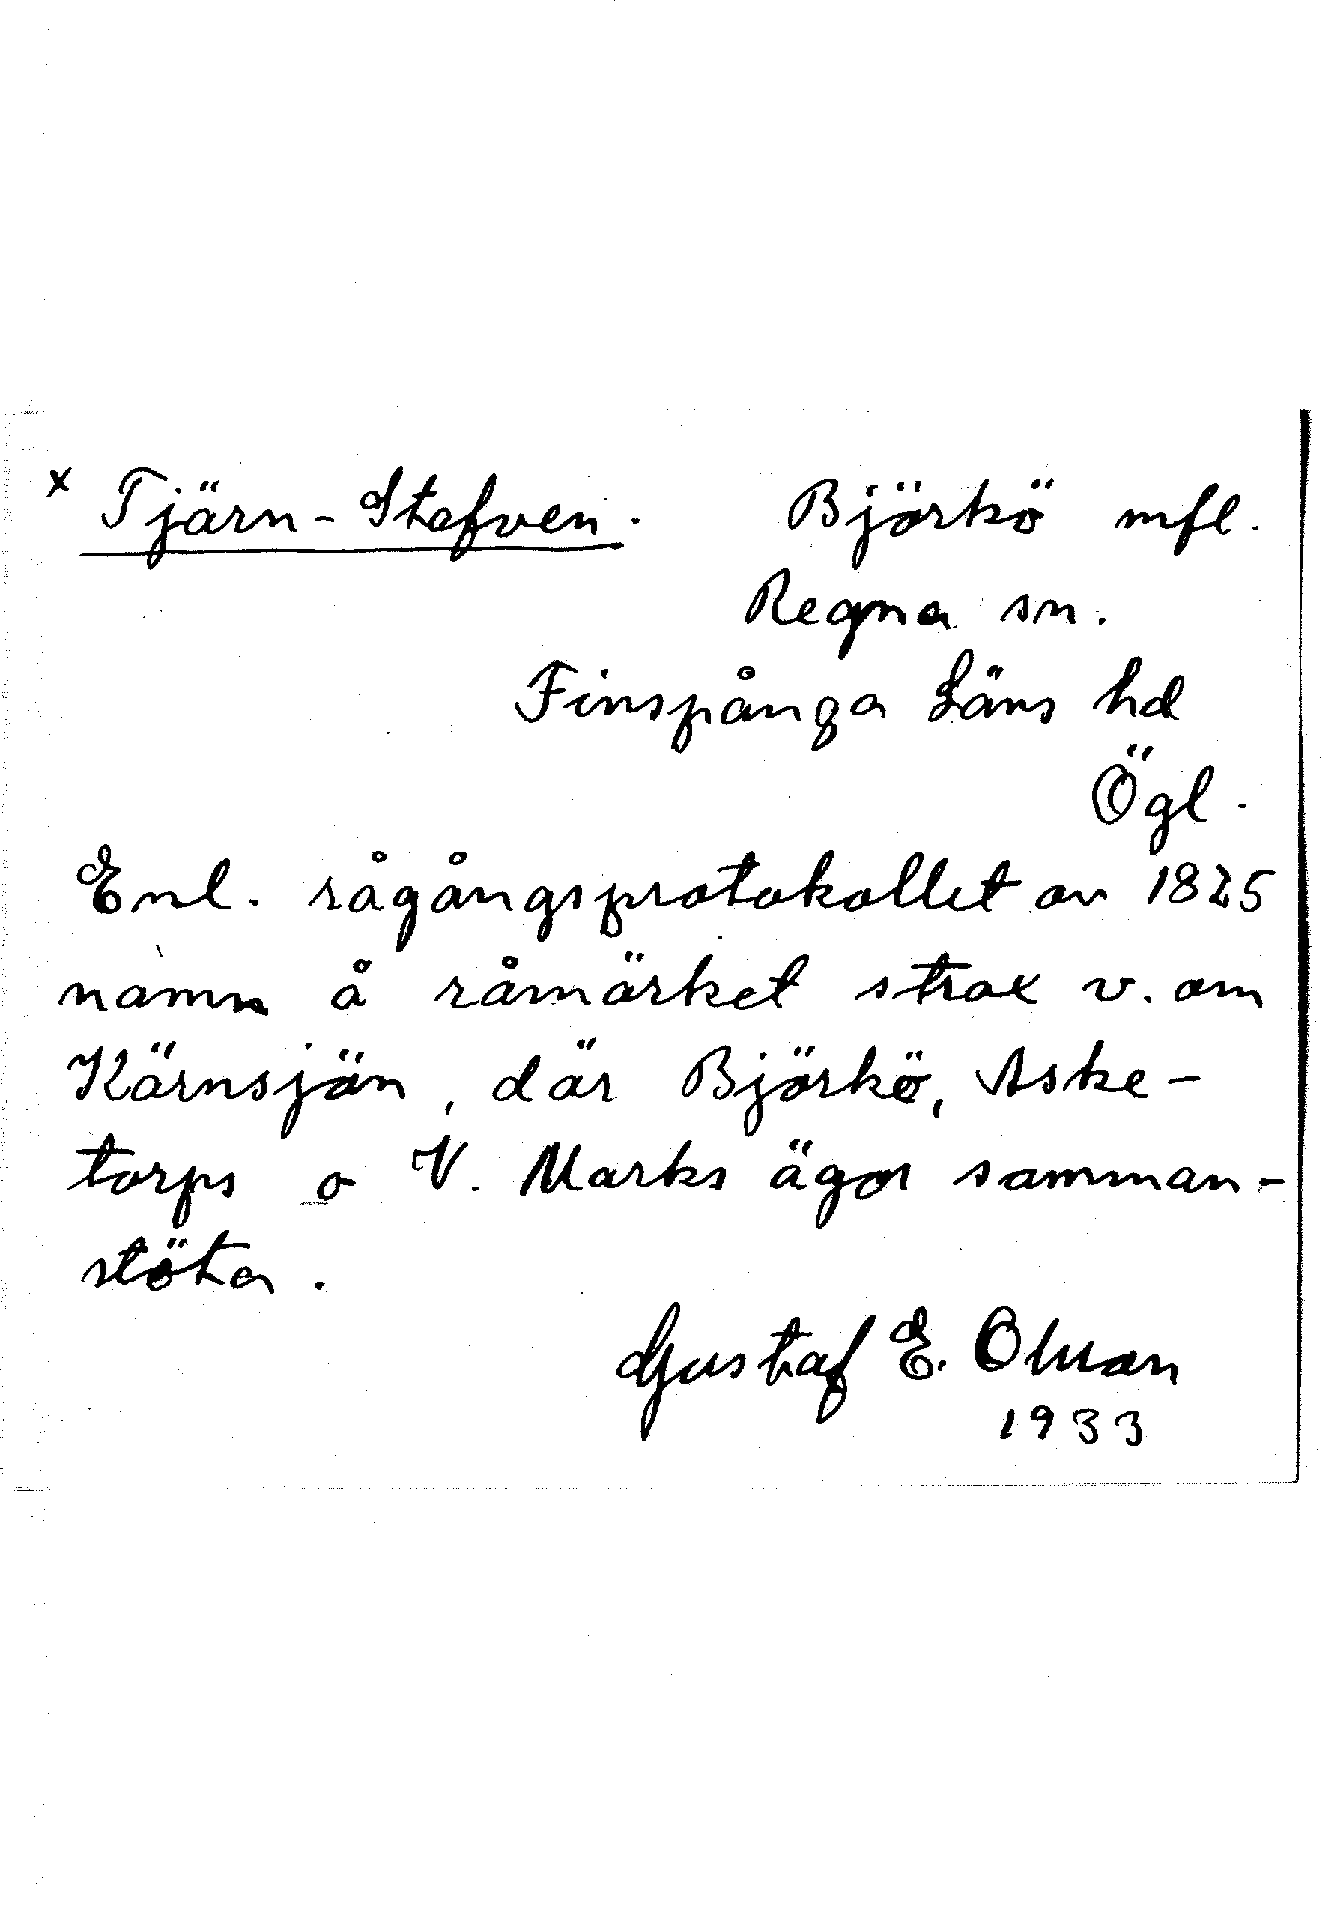 x Tjärn-Stafven. Björkö mfl.
Regna sn.
Finspånga Läns hd
Ögl.
Enl. rågångsprotokollet av 1825
namn å råmärket strax v. om
Kärnsjön, där Björkö, Aske-
torps o V. Marks ägor samman-
stöta.
Gustaf E. Olman
1933